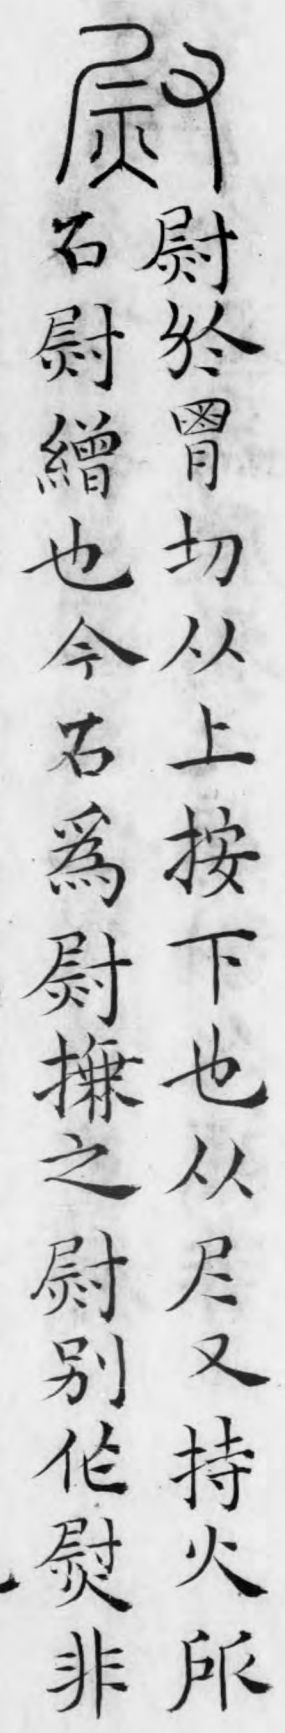 尉
尉於胃切从上按下也从𡰥又持火所
㠯尉繒也今㠯爲尉撫之尉别作熨非